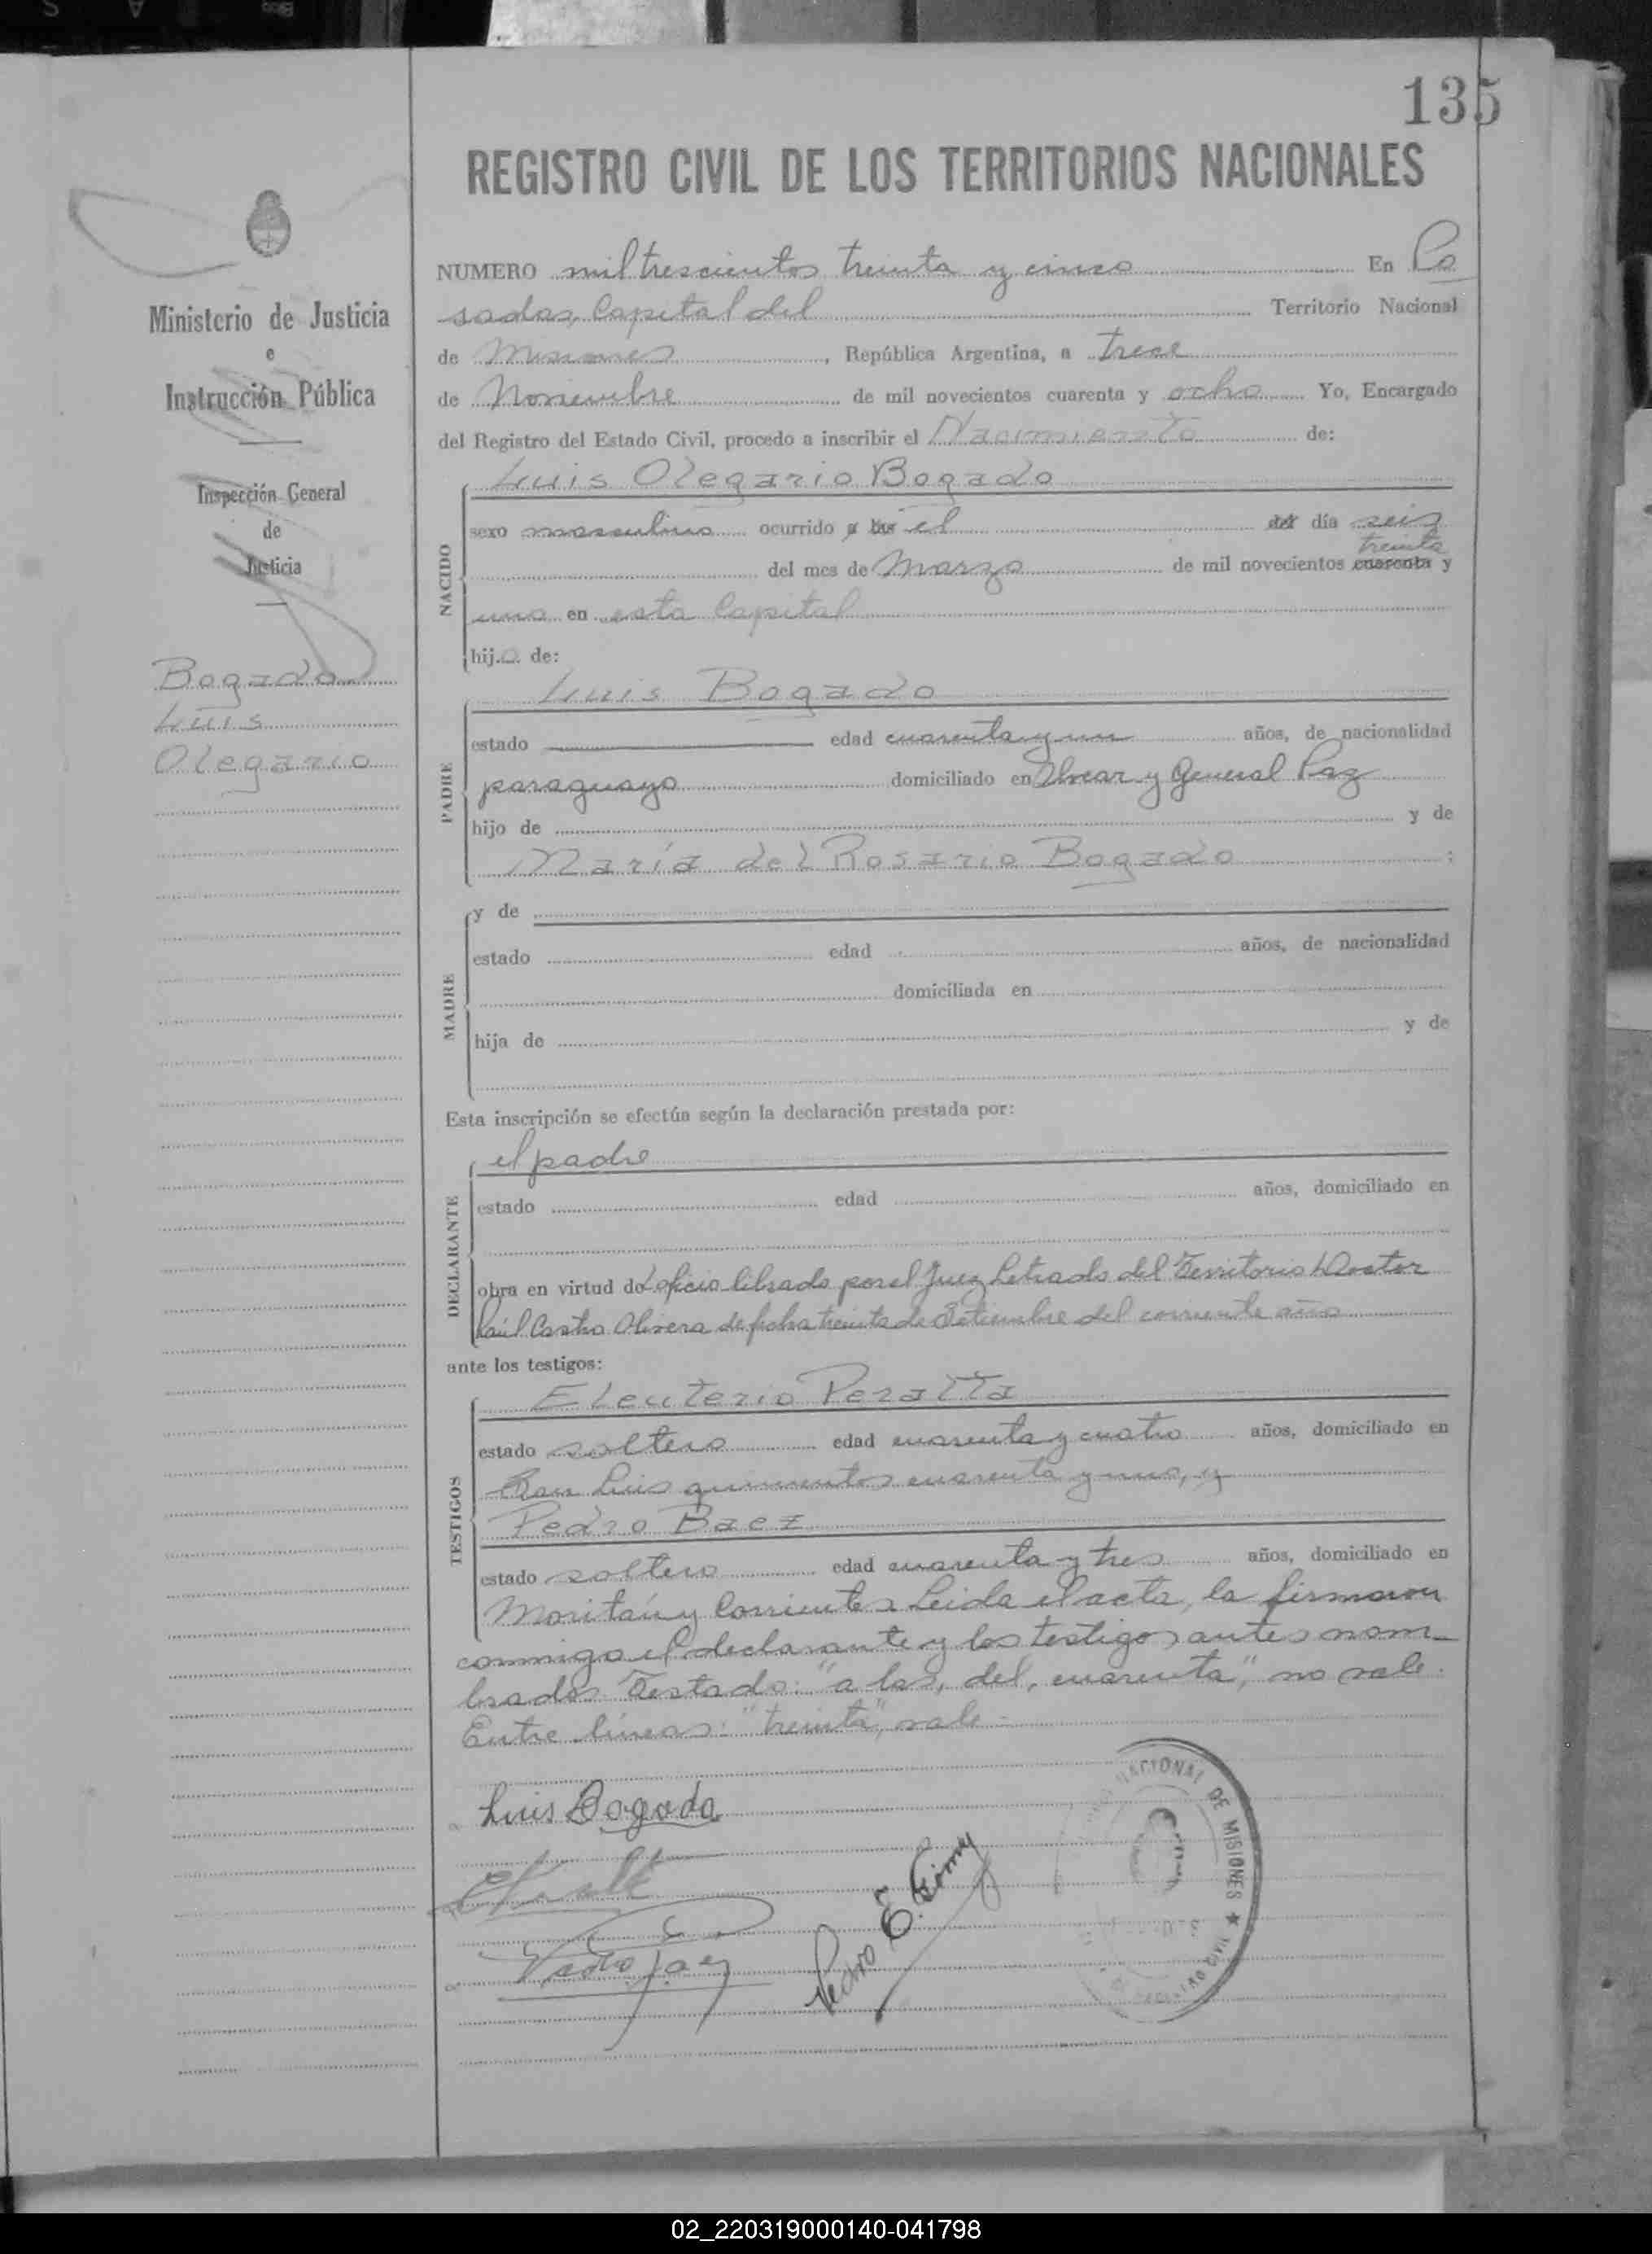 135
REGISTRO CIVIL DE LOS TERRITORIOS NACIONALES
Ministerio de Justicia
e
Instrucción Pública
Inspección General
de
Justicia
Bogado
Luis
Olegario
NUMERO mil trescientos treinta y cinco En Po
sadas, Capital del Territorio Nacional
de Misiones, República Argentina, a trece
de Noviembre de mil novecientos cuarenta y ocho Yo, Encargado
del Registro del Estado Civil, procedo a inscribir el Nacimiento de:
NACIDO
Luis Olegario Bogado
sexo masculino ocurrido a las el del día seis
treinta
del mes de Marzo de mil novecientos cuarenta y
uno en esta Capital
hijo de:
PADRE
Luis Bogado
estado edad cuarenta y un años, de nacionalidad
paraguayo domiciliado en Alvear y General Paz
hijo de y de
María del Rosario Bogado ;
MADRE
y de
estado edad años, de nacionalidad
domiciliada en
hija de y de
Esta inscripción se efectúa según la declaración prestada por:
DECLARANTE
el padre
estado edad años, domiciliado en
obra en virtud del oficio librado por el Juez Letrado del Territorio Doctor
Raúl Castro Olivera de fecha treinta de Setiembre del corriente año
ante los testigos:
TESTIGOS
Eleuterio Peralta
estado soltero edad cuarenta y cuatro años, domiciliado en
San Luis quinientos cuarenta y uno, y
Pedro Baez
estado soltero edad cuarenta y tres años, domiciliado en
Moritán y Corrientes Leida el acta, la firmaron
conmigo el declarante y los testigos antes nom-
brados Testado: "a las, del, cuarenta", no vale.
Entre líneas: "treinta", vale.-
Luis Bogado
Pedro E.
NACIONAL DE MISIONES ★
02_220319000140-041798